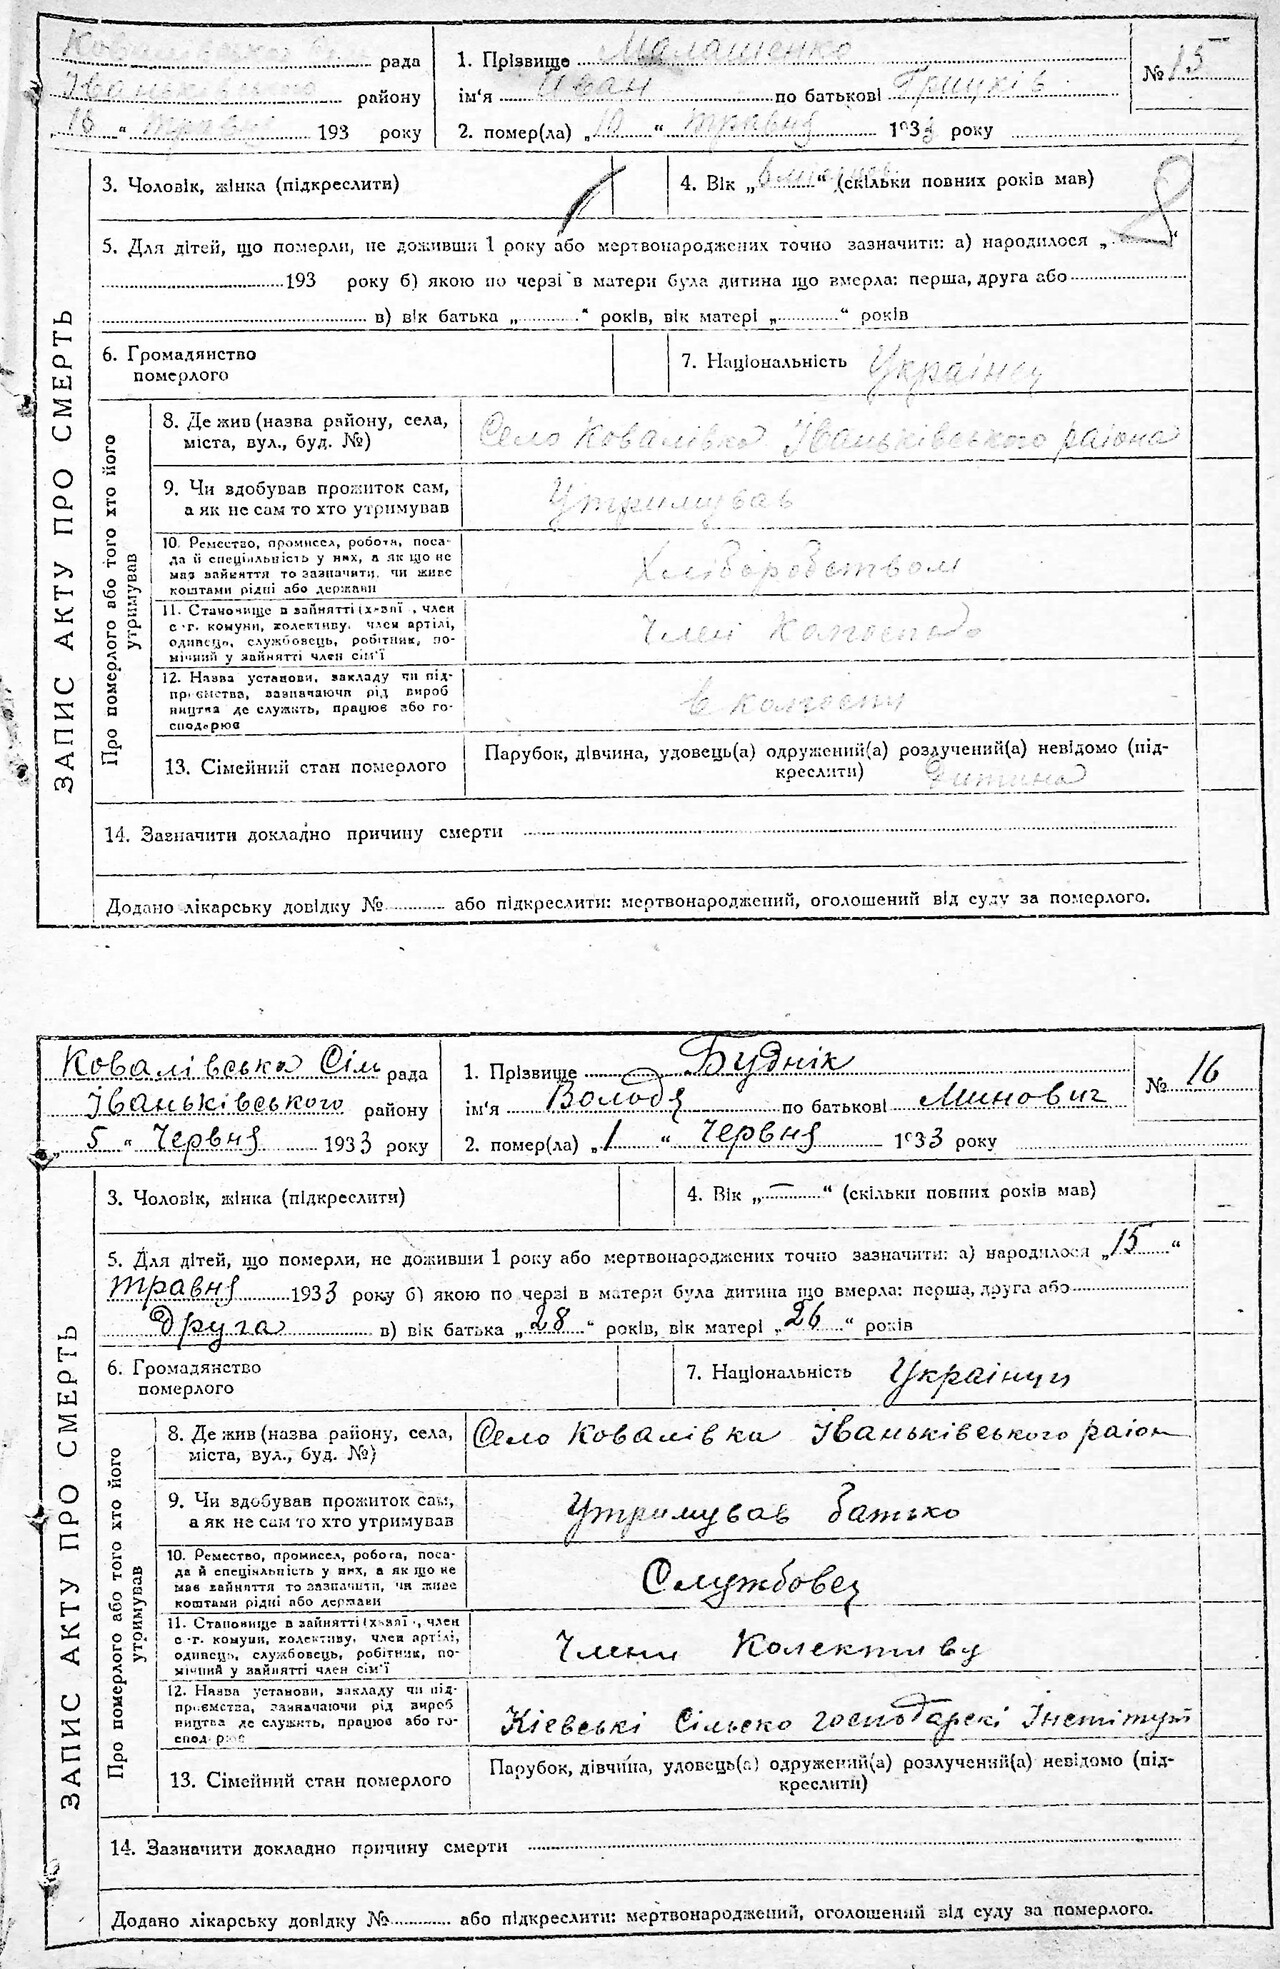 Ковалівська Сіл рада
Іваньківського району
"16" травня 193 року
1. Прізвище Малашенко
ім'я Иван по батькові Грицків
2. помер(ла) "10" травня 1933 року
№ 15
3. Чоловік, жінка (підкреслити)
4. Вік „ “ (скільки повних років мав)
5. Для дітей, що померли, не доживши 1 року або мертвонароджених точно зазначити: а) народилося „ “
193 року б) якою по черзі в матери була дитина що вмерла: перша, друга або
в) вік батька „ “ років, вік матері „ “ років
6. Громадянство
померлого
7. Національність Українец
ЗАПИС АКТУ ПРО СМЕРТЬ
Про померлого або того хто його
утримував
8. Де жив (назва району, села,
міста, вул., буд. №)
Село Ковалівка Іваньківського раіона
9. Чи здобував прожиток сам,
а як не сам то хто утримував
Утримував
10. Ремество, промисел, робота, поса-
да й спеціяльність у них, а як що не
має зайняття то зазначити, чи живе
коштами рідні або держави
Хліборобством
11. Становище в зайнятті (х-зяї, член
с.-г. комуни, колективу, член артілі,
одинець, службовець, робітник, по-
мічний у зайнятті член сім'ї
Член
12. Назва установи, закладу чи під-
приємства, зазначаючи рід вироб
ництва де служить, працює або го-
сподарює
в колгоспи
13. Сімейний стан померлого
Парубок, дівчина, удовець(а) одружений(а) розлучений(а) невідомо (під-
креслити) Дитина
14. Зазначити докладно причину смерти
Додано лікарську довідку № або підкреслити: мертвонароджений, оголошений від суду за померлого.
Ковалівська Сіл рада
Іваньківського району
„5“ Червня 1933 року
1. Прізвище Буднік
ім'я Володя по батькові Минович
2. помер(ла) „1“ Червня 1933 року
№ 16
3. Чоловік, жінка (підкреслити)
4. Вік „—“ (скільки повних років мав)
5. Для дітей, що померли, не доживши 1 року або мертвонароджених точно зазначити: а) народилося „15“
травня 1933 року б) якою по черзі в матери була дитина що вмерла: перша, друга або
друга в) вік батька „28“ років, вік матері „26“ років
6. Громадянство
померлого
7. Національність Українци
ЗАПИС АКТУ ПРО СМЕРТЬ
Про померлого або того хто його
утримував
8. Де жив (назва району, села,
міста, вул., буд. №)
Село Ковалівка Іваньківського раіон
9. Чи здобував прожиток сам,
а як не сам то хто утримував
Утримував батько
10. Ремество, промисел, робота, поса-
да й спеціяльність у них, а як що не
має зайняття то зазначити, чи живе
коштами рідні або держави
Службовец
11. Становище в зайнятті (х-зяї, член
с.-г. комуни, колективу, член артілі,
одинець, службовець, робітник, по-
мічний у зайнятті член сім'ї
Члени Колективу
12. Назва установи, закладу чи під-
приємства, зазначаючи рід вироб
ництва де служить, працює або го-
сподарює
Кіевські Сільско господарскі Інститут
13. Сімейний стан померлого
Парубок, дівчина, удовець(а) одружений(а) розлучений(а) невідомо (під-
креслити)
14. Зазначити докладно причину смерти
Додано лікарську довідку № або підкреслити: мертвонароджений, оголошений від суду за померлого.